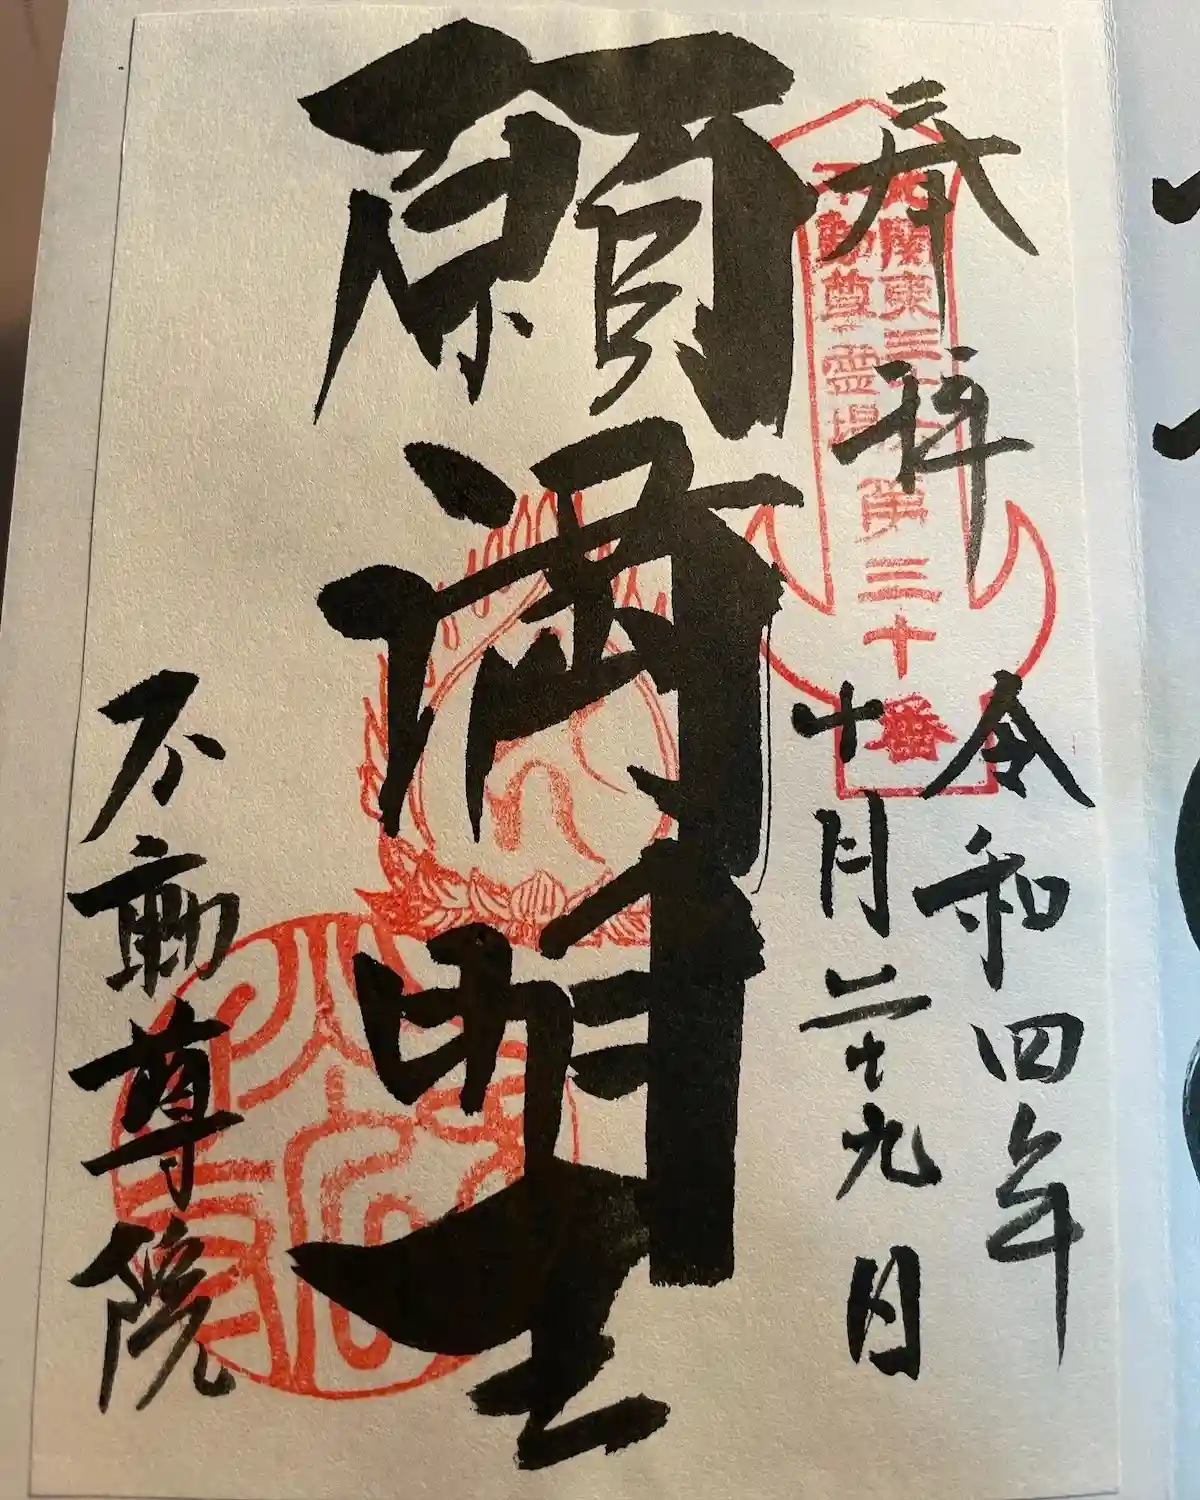 奉拝
北関東三十六
不動尊霊場
第三十番
令和四年
十月二十九日
願満明王
不動尊院